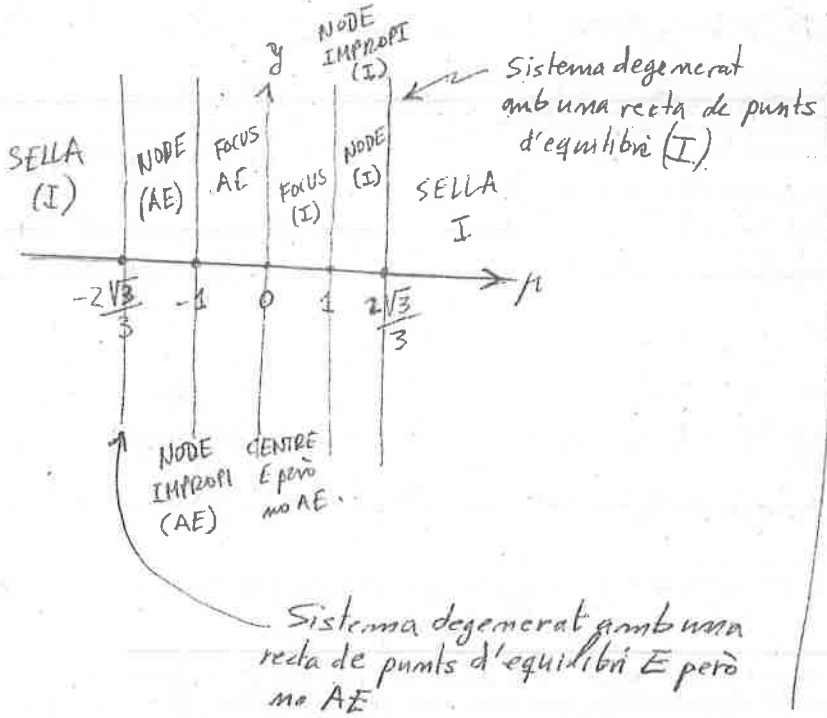 NODE
IMPROPI
(I)
y
Sistema degenerat
amb una recta de punts
d'equilibri (I)
SELLA
(I)
NODE
(AE)
FOCUS
AE
FOCUS
(I)
NODE
(I)
SELLA
I
μ
-2√3/3
-1
0
1
2√3/3
NODE
IMPROPI
(AE)
CENTRE
E però
no AE.
Sistema degenerat amb una
recta de punts d'equilibri E però
no AE